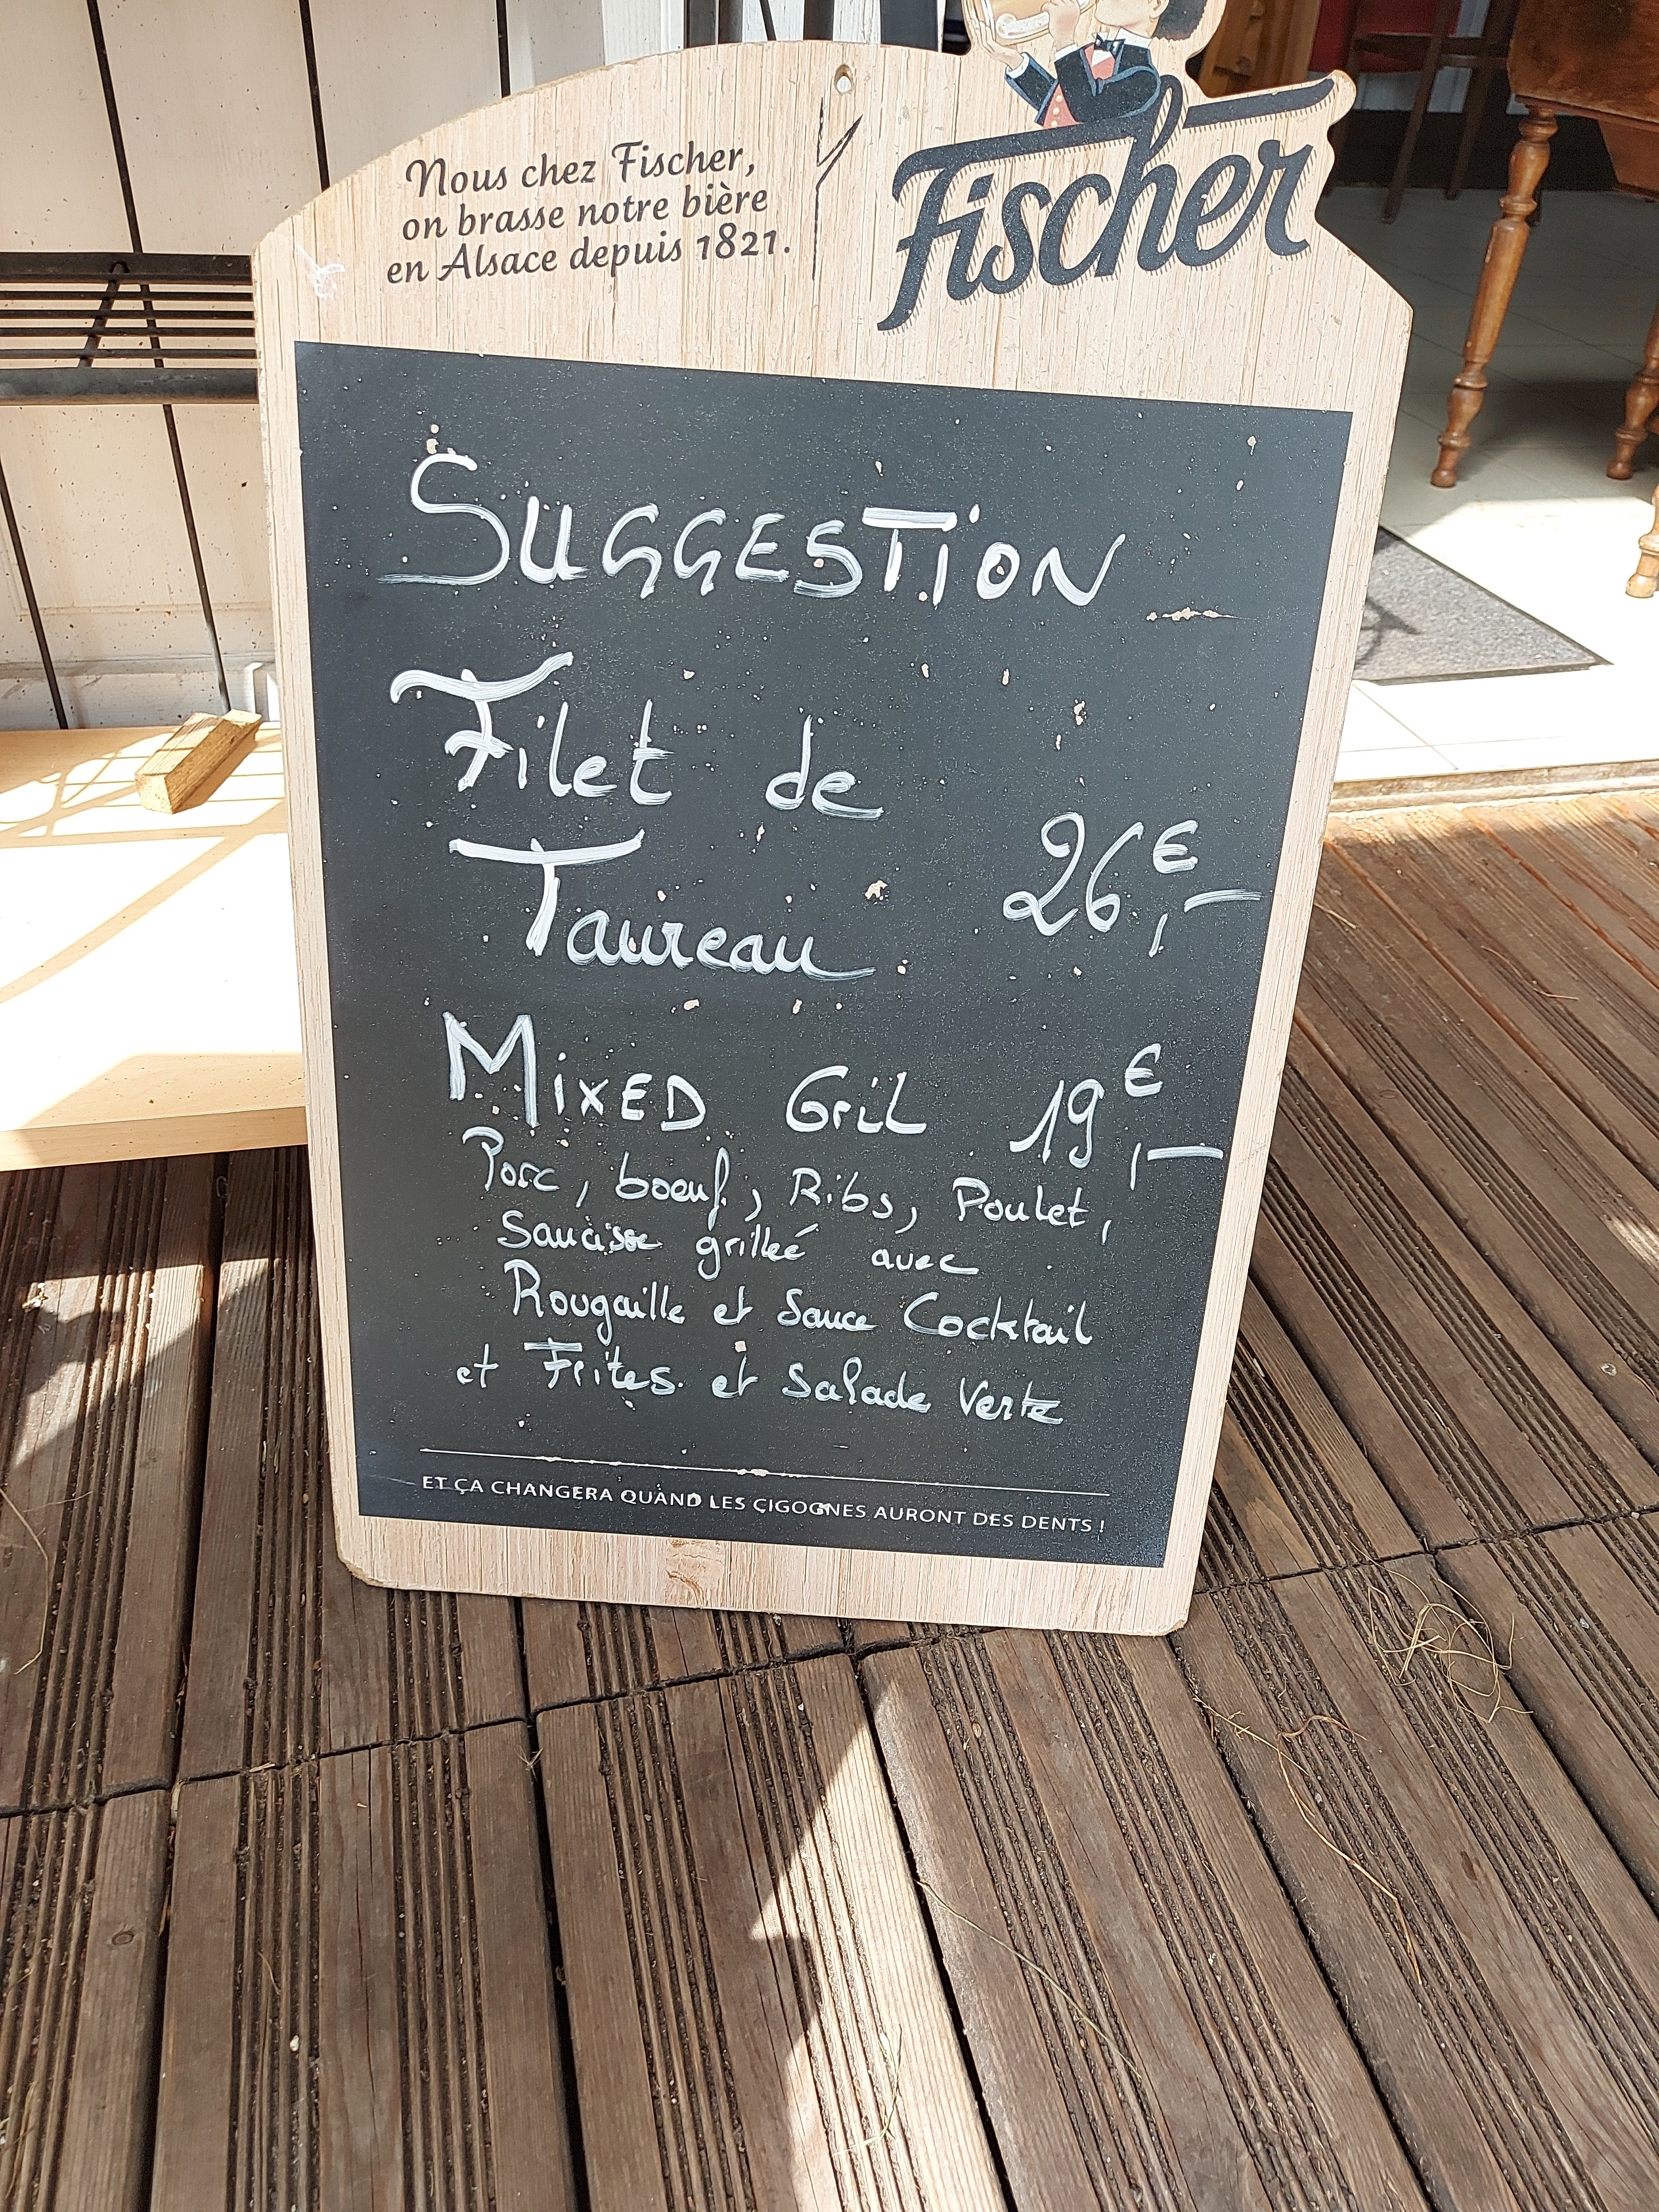 Nous chez Fischer,
on brasse notre bière
en Alsace depuis 1821.
Fischer
SUGGESTiON
Filet de
Taureau 26,-€
MiXED Gril 19,-€
Porc, boeuf, Ribs, Poulet,
Saucisse grilleé avec
Rougaille et Sauce Cocktail
et Frites et Salade Verte
ET ÇA CHANGERA QUAND LES CIGOGNES AURONT DES DENTS !